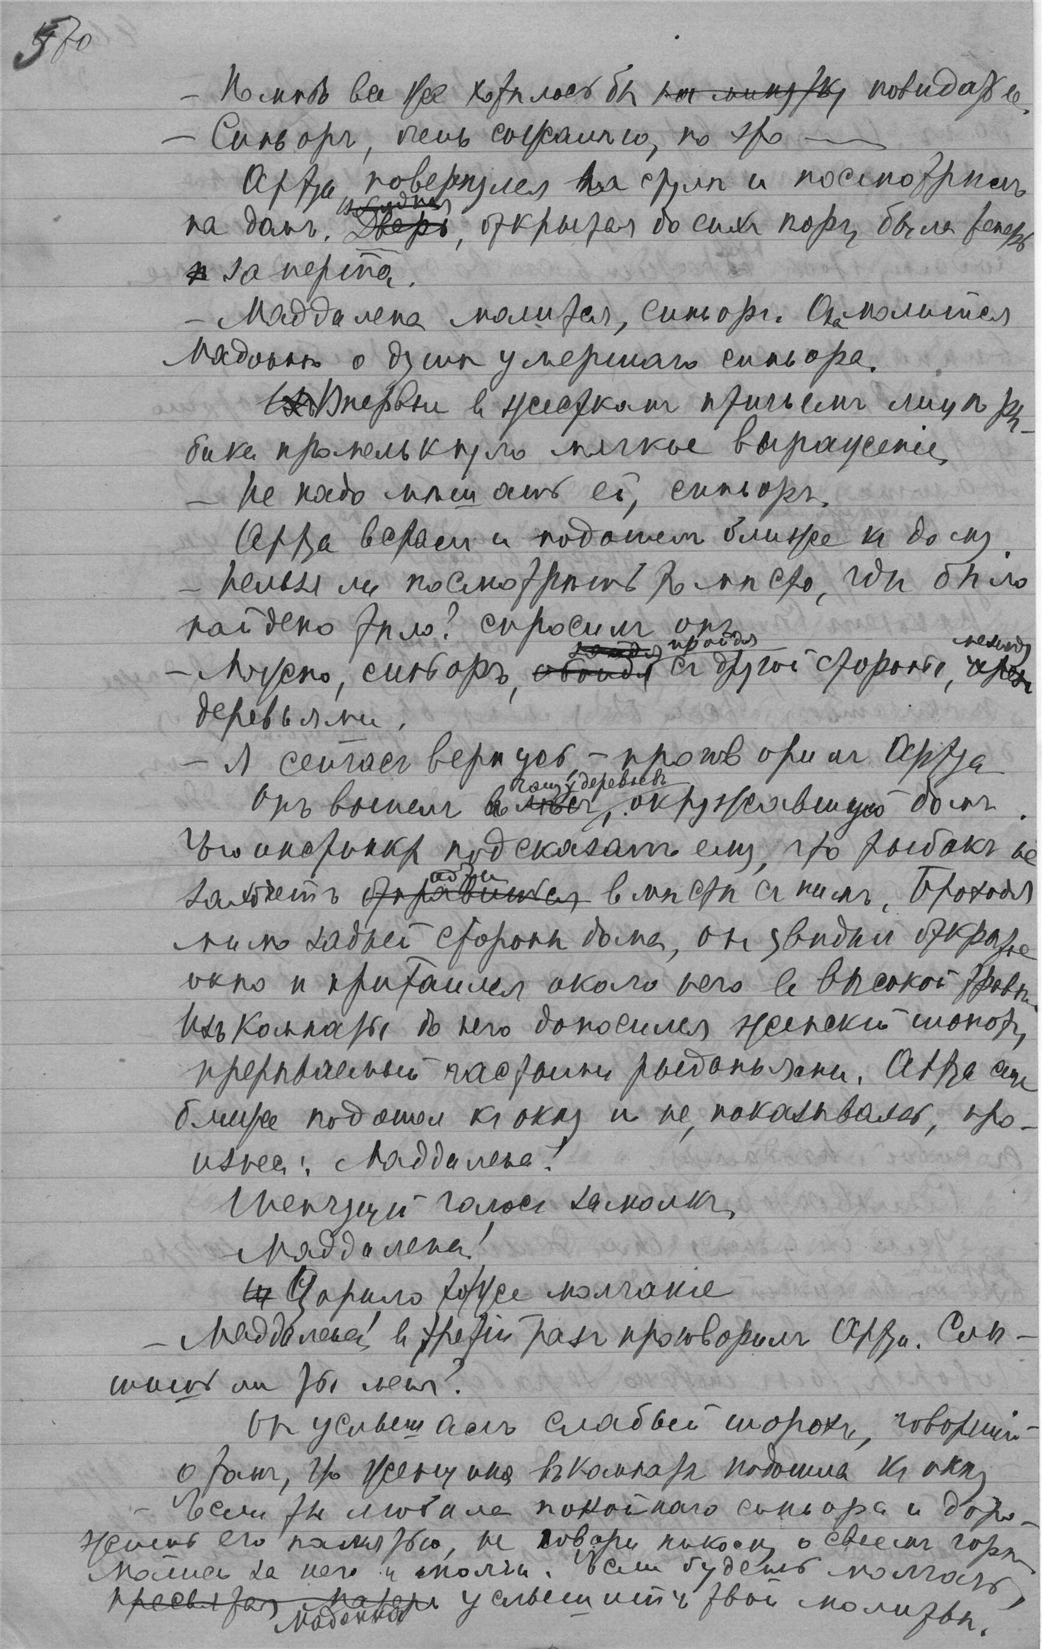 570
— Но мнѣ все же хотѣлось бы на минутку повидать ее.
— Синьоръ, очень сожалѣю, но это —
Арта повернулся на стулѣ и посмотрѣлъ
на домъ. Дверь, открытая до сихъ поръ, была теперь
заперта.
— Маддалена молится, синьоръ. Она молится
Мадоннѣ о душѣ умершаго синьора.
Впервые в жесткомъ птичьемъ лицѣ ры-
бака промелькнуло мягкое выраженіе.
— Не надо мѣшать ей, синьоръ.
Арта всталъ и подошелъ ближе къ дому.
— Нельзя ли посмотрѣть то мѣсто, гдѣ было
найдено тѣло? спросилъ онъ.
пройдя между
— Можно, синьоръ, обойдя съ другой стороны,
деревьями.
— Я сейчасъ вернусь, — проговорилъ Арта
чащу деревьевъ
Онъ вошелъ в лѣсъ, окружавшую домъ.
Его инстинктъ подсказалъ ему, что рыбакъ не
идти
захочетъ отправиться вмѣстѣ съ нимъ. Проходя
мимо задней стороны дома, онъ увидѣлъ открытое
окно и притаился около него в высокой травѣ.
Изъ комнаты до него доносился женскій шопотъ,
прерываемый частыми рыданьями. Арта еще
ближе подошелъ къ окну и не показываясь, про-
изнес: Маддалена!
Шепчущій голосъ замолкъ.
— Маддалена!
Царило то же молчаніе
— Маддалена! в третій разъ проговорилъ Арта. Слы-
шишь ли ты меня?
Он услышалъ слабый шорохъ, говорившій
о томъ, что женщина въ комнатѣ подошла къ окну
— Если ты любила покойнаго синьора и доро-
жишь его памятью, не говори никому о своемъ горѣ
молись за него и молчи. Если будешь молчать,
пресвятая матерь услышитъ твои молитвы.
мадонна